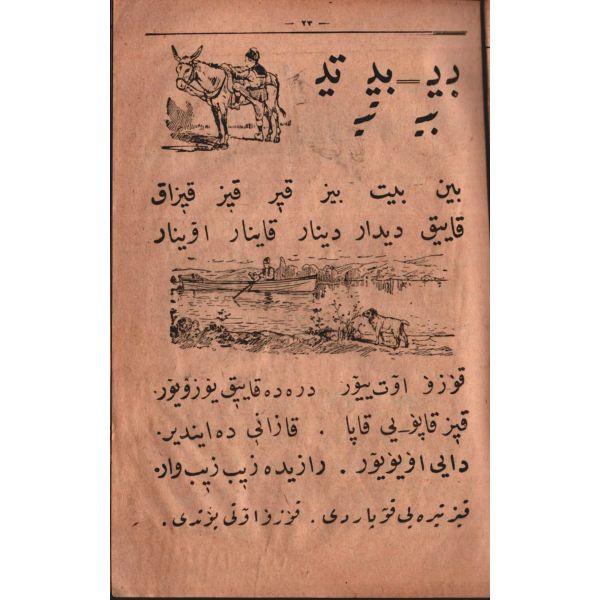 — ٢٣ —
ديـ ـ بيد تيد
بين بيت بيز قير قيز قيزاق
قاييق ديدار دينار قاينار اوينار
قوزو اوت يييور دره ده قاييق يوزويور.
قيز قاپو ـ يي قاپا . قازانى ده اينديـر.
دايى اويويور . رازيده زيپ زيپ وار.
قيز تيره يى قوپاردى . قوزو اوتى يوتدى .